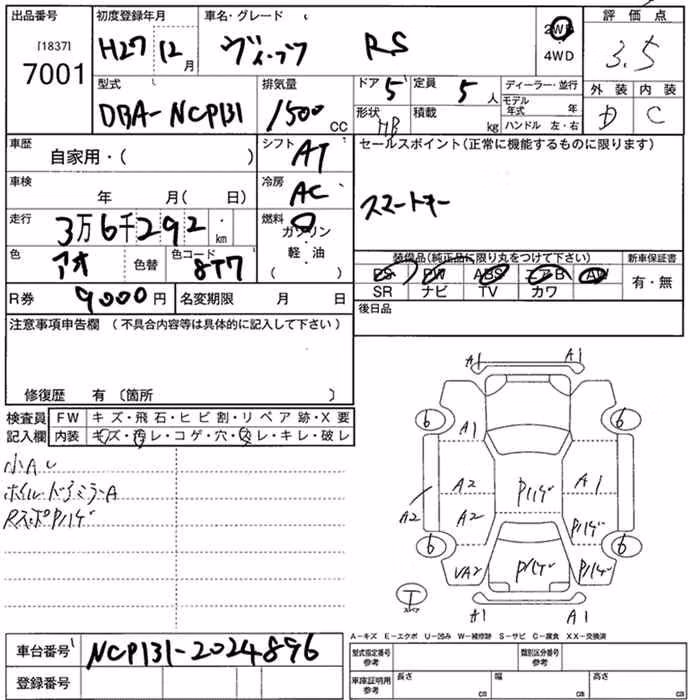 出品番号 初度登録年月 車名・グレード 評価点
[1837] H27 12月 ヴィッツ RS 2WD 3.5
7001 4WD
型式 排気量 ドア 5 定員 5人 ディーラー・並行 外装 内装
DBA-NCP131 1500CC 形状 HB 積載 kg モデル年式 年 D C
ハンドル 左・右
車歴 自家用・( ) シフト AT セールスポイント(正常に機能するものに限ります)
車検 年 月( 日) 冷房 AC スマートキー
走行 3万6千292 km 燃料 ガソリン
軽・油
( )
色 アオ 色替 色コード 8T7 装備品(純正品に限り丸をつけて下さい) 新車保証書
PS PW ABS エアB AW 有・無
R券 9000円 名変期限 月 日 SR ナビ TV カワ
注意事項申告欄(不具合内容等は具体的に記入して下さい) 後日品
修復歴 有(箇所 )
検査員 FW キズ・飛石・ヒビ割・リペア跡・X要
記入欄 内装 キズ・汚レ・コゲ・穴・スレ・キレ・破レ
小AU
ホイル・ドアミラーA
RスポPハゲ
A1 A1
6 6
A1
A2 Pハゲ A1
A2 A2 Pハゲ
6 6
VA2 Pハゲ Pハゲ
T
スペア
A1 A1
A-キズ E-エクボ U-凹み W-補修跡 S-サビ C-腐食 XX-交換済
車台番号 NCP131-2024896 型式指定番号 参考 類別区分番号 参考
登録番号 車庫証明用 参考 長さ cm 幅 cm 高さ cm